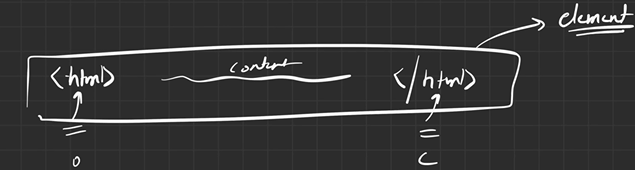 element
<html> content </html>
O C